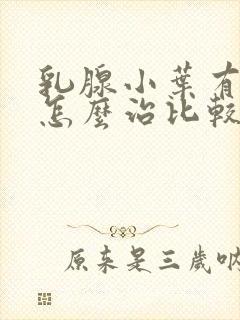 乳腺小葉有
怎麼治比較
原来是三歲呐